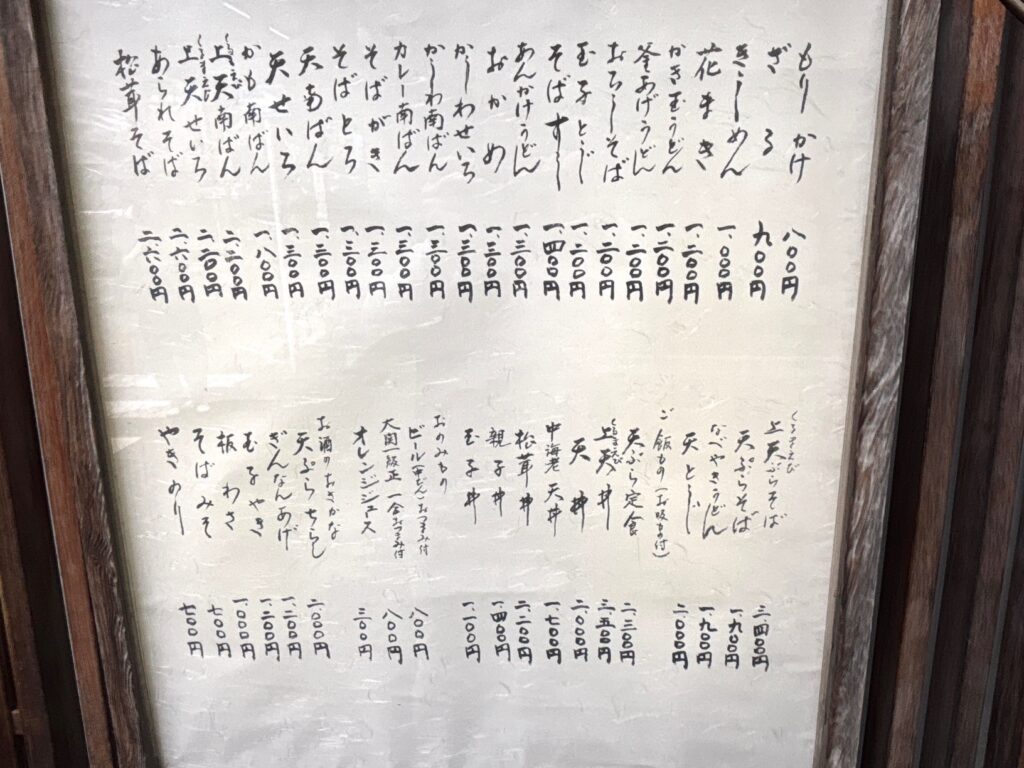 もり かけ 八〇〇円
ざる 九〇〇円
きしめん 一、〇〇〇円
花まき 一、二〇〇円
かき玉うどん 一、二〇〇円
釜あげうどん 一、二〇〇円
おろしそば 一、二〇〇円
玉子とじ 一、二〇〇円
そばすし 一、四〇〇円
あんかけうどん 一、三〇〇円
おかめ 一、三〇〇円
かしわせいろ 一、三〇〇円
かしわ南ばん 一、三〇〇円
カレー南ばん 一、三〇〇円
そばがき 一、三〇〇円
そばとろ 一、三〇〇円
天南ばん 一、三〇〇円
天せいろ 一、三〇〇円
かも南ばん 一、八〇〇円
くるまえび
上天南ばん 二、二〇〇円
くるまえび
上天せいろ 二、二〇〇円
あられそば 二、六〇〇円
松茸そば 二、六〇〇円
くるまえび
上天ぷらそば 三、四〇〇円
天ぷらそば 一、九〇〇円
なべやきうどん 一、九〇〇円
天とじ 二、〇〇〇円
ご飯もの(お吸もの付)
天ぷら定食 二、三〇〇円
くるまえび
上天丼 三、五〇〇円
天丼 二、〇〇〇円
中海老天丼 一、七〇〇円
松茸丼 二、二〇〇円
親子丼 一、四〇〇円
玉子丼 一、一〇〇円
おのみもの
ビール(中びん)おつまみ付 八〇〇円
大関一級正一合おつまみ付 八〇〇円
オレンジジュース 三〇〇円
お酒のおさかな
天ぷらちらし 二、〇〇〇円
ぎんなんあげ 一、二〇〇円
玉子やき 一、〇〇〇円
板わさ 一、〇〇〇円
そばみそ 七〇〇円
やきのり 七〇〇円